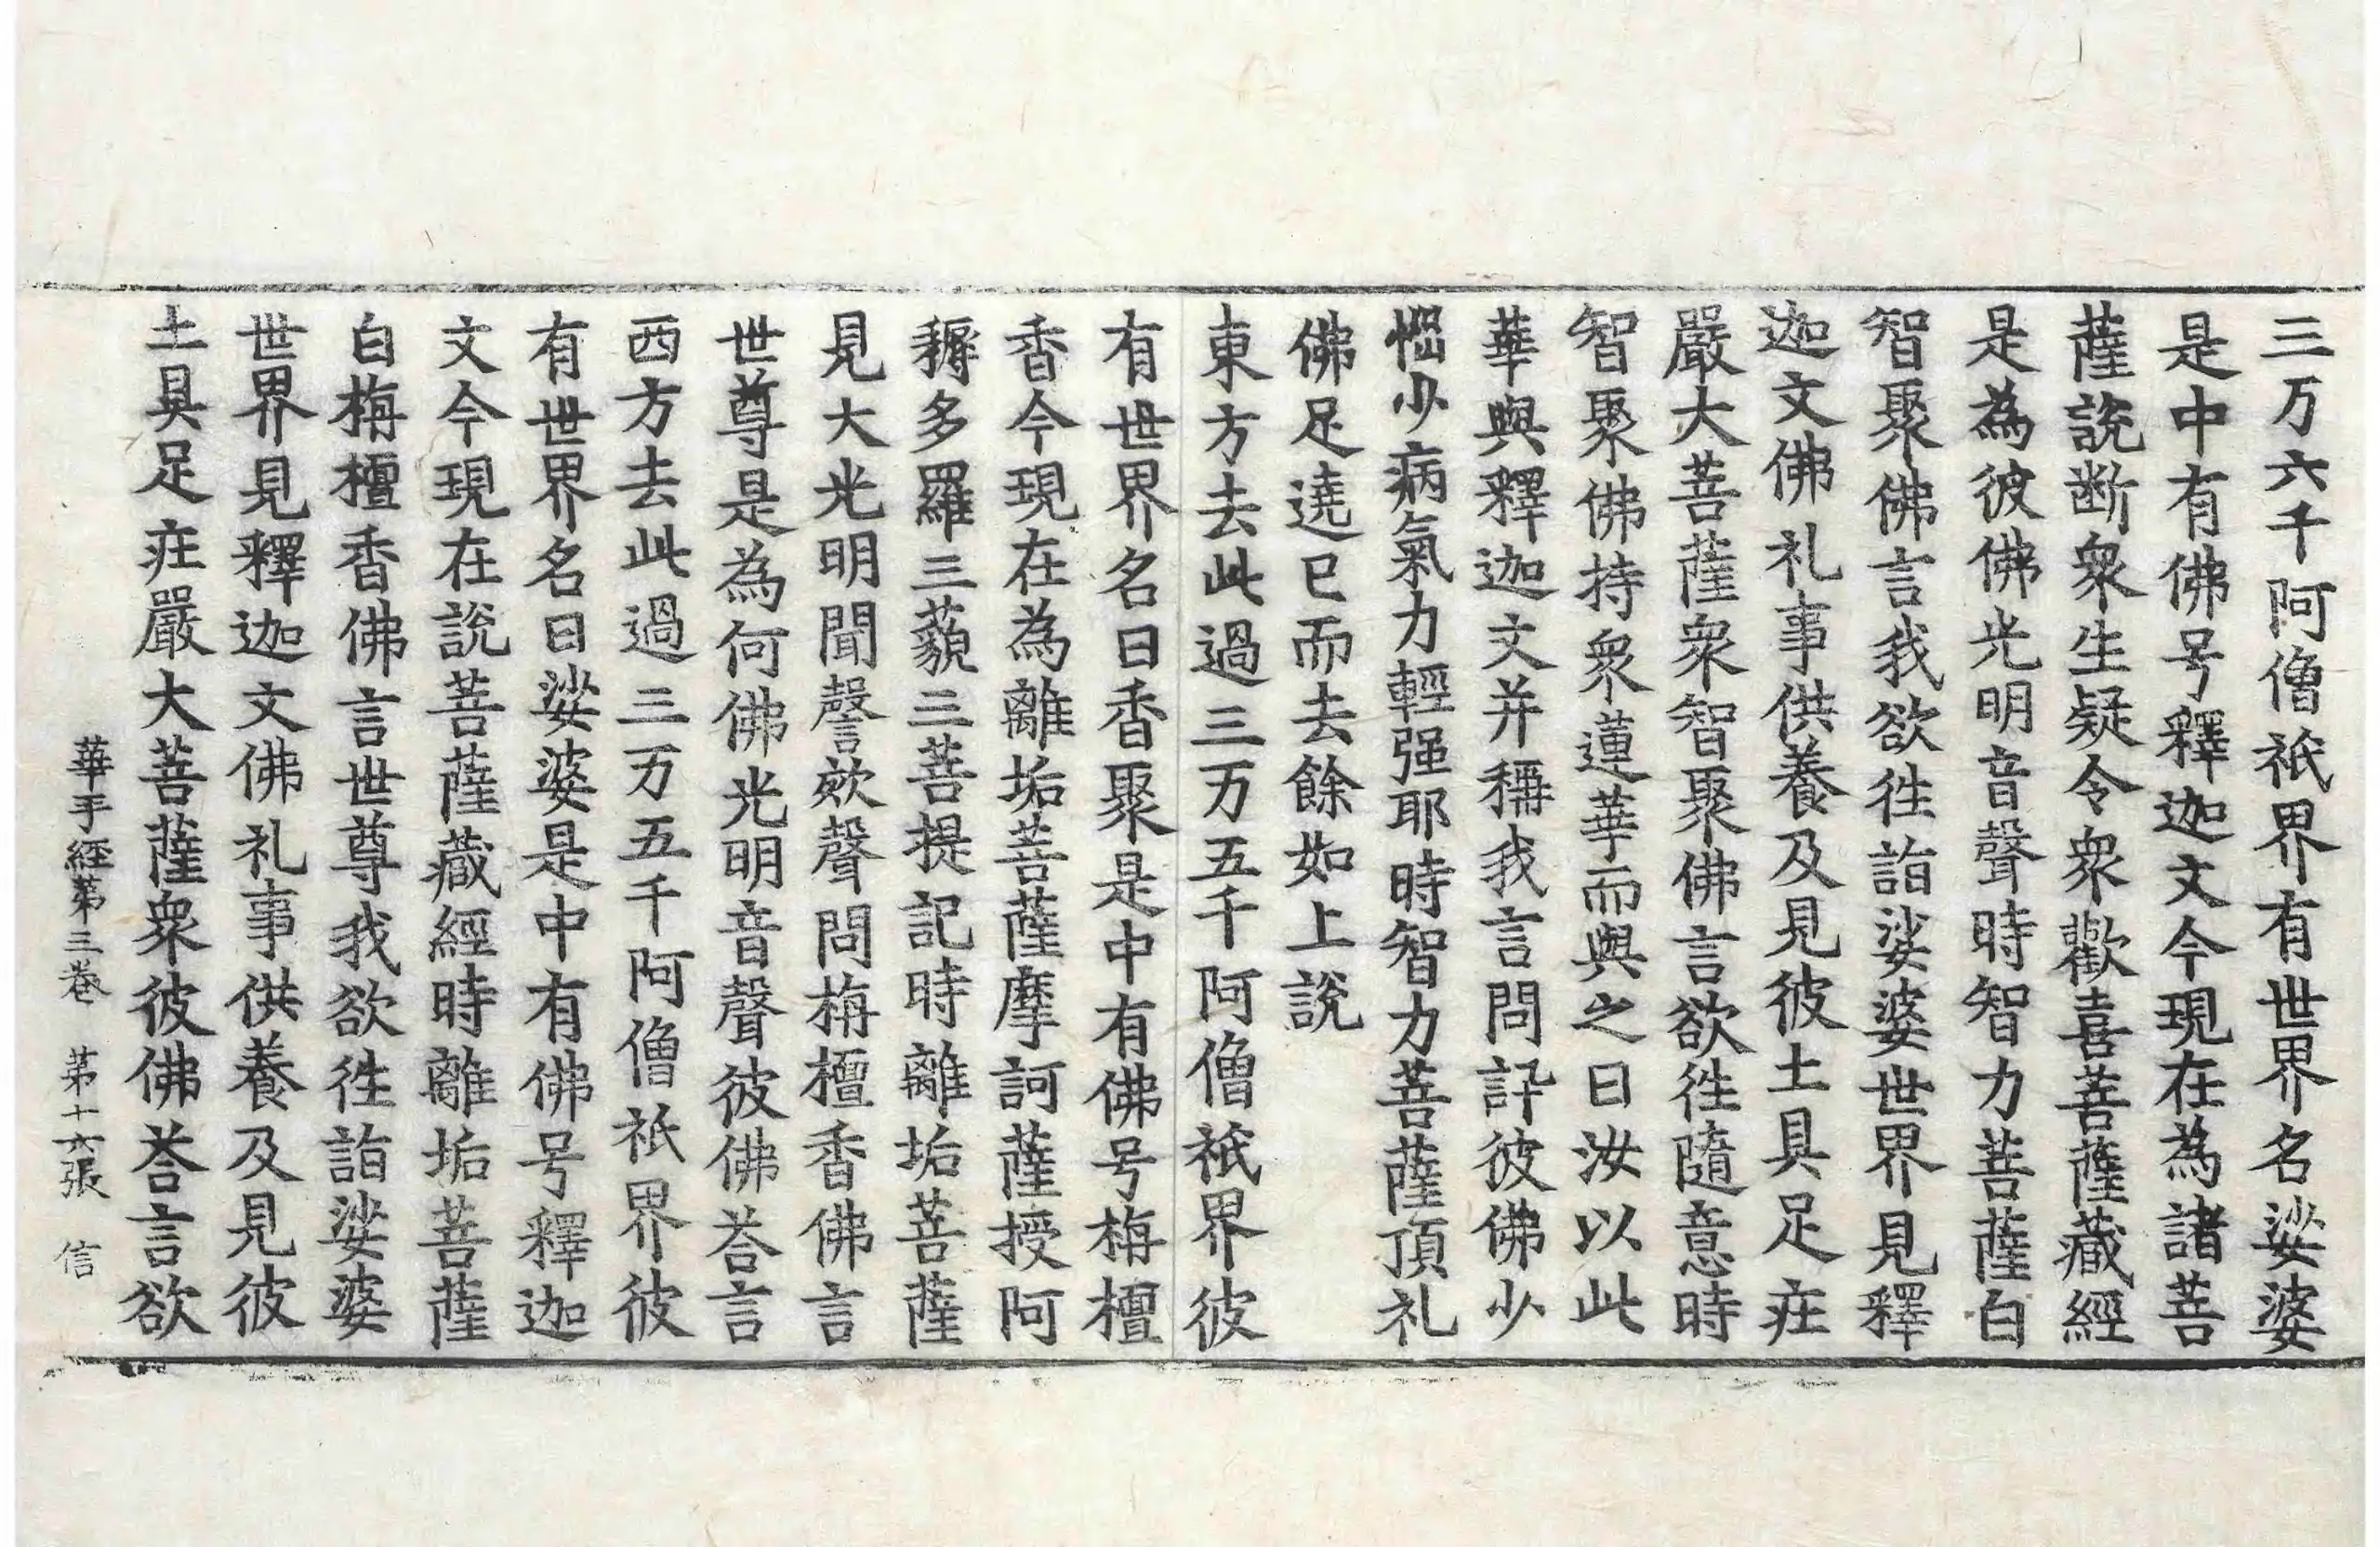 三万六千阿僧祇界有世界名娑婆
是中有佛号釋迦文今現在為諸菩
薩説断衆生疑令衆歡喜菩薩藏經
是為彼佛光明音聲時智力菩薩白
智聚佛言我欲徃詣娑婆世界見釋
迦文佛礼事供養及見彼土具足𤖆
嚴大菩薩衆智聚佛言欲徃隨意時
智聚佛持衆蓮華而與之曰汝以此
華與釋迦文并稱我言問訊彼佛少
惱少病氣力輕强耶時智力菩薩頂礼
佛足遶已而去餘如上說
東方去此過三万五千阿僧祇界彼
有世界名曰香聚是中有佛号栴檀
香今現在為離垢菩薩摩訶薩授阿
耨多羅三藐三菩提記時離垢菩薩
見大光明聞謦欬聲問栴檀香佛言
世尊是為何佛光明音聲彼佛荅言
西方去此過三万五千阿僧祇界彼
有世界名曰娑婆是中有佛号釋迦
文今現在說菩薩藏經時離垢菩薩
白栴檀香佛言世尊我欲徃詣娑婆
世界見釋迦文佛礼事供養及見彼
土具足𤖆嚴大菩薩衆彼佛荅言欲
華手經第三卷 第十六張 信